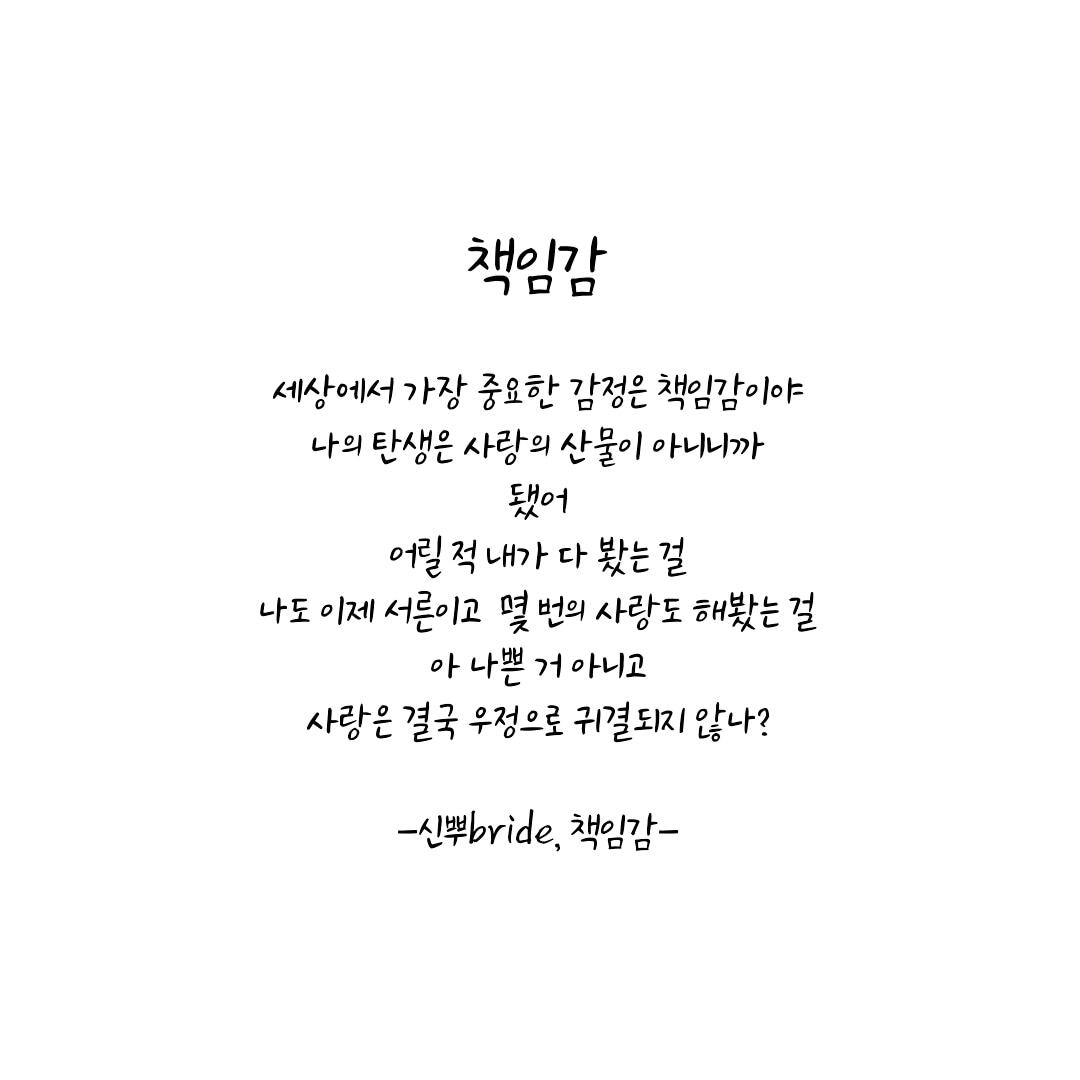 책임감
세상에서 가장 중요한 감정은 책임감이야
나의 탄생은 사랑의 산물이 아니니까
됐어
어릴 적 내가 다 봤는 걸
나도 이제 서른이고 몇 번의 사랑도 해봤는 걸
아 나쁜 거 아니고
사랑은 결국 우정으로 귀결되지 않나?
-신뿌bride, 책임감-